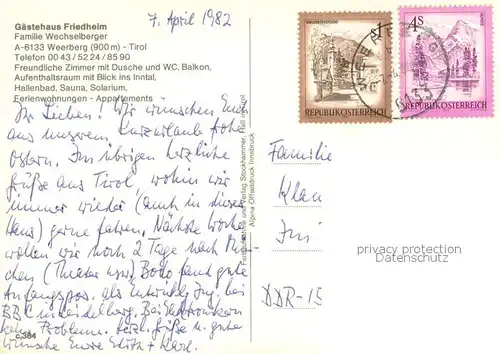 7. April 1982
Gästehaus Friedheim
Familie Wechselberger
A-6133 Weerberg (900 m) - Tirol
Telefon 00 43 / 52 24 / 85 90
Freundliche Zimmer mit Dusche und WC, Balkon,
Aufenthaltsraum mit Blick ins Inntal,
Hallenbad, Sauna, Solarium,
Ferienwohnungen - Appartements
Ihr Lieben! Wir wünschen Euch
aus unserem Kurzurlaub frohe
Ostern. Im übrigen herzliche
Grüße aus Tirol, wohin wir
immer wieder (auch in dieses
Haus) gerne fahren. Nächste Woche
wollen wir noch 2 Tage nach Mün-
chen (Theater usw.) Bodo fand gute
Anfangspos. als
BBC in Heidelberg. Bei Elektronikern
kein Problem. Herzl. Grüße u. gute
Wünsche Eure Edith + Karl.
c.384
Alpina Offsetdruck Innsbruck
4S
REPUBLIK ÖSTERREICH
REPUBLIK ÖSTERREICH
6133
Familie
Klau
Jui
DDR-15
privacy protection
Datenschutz